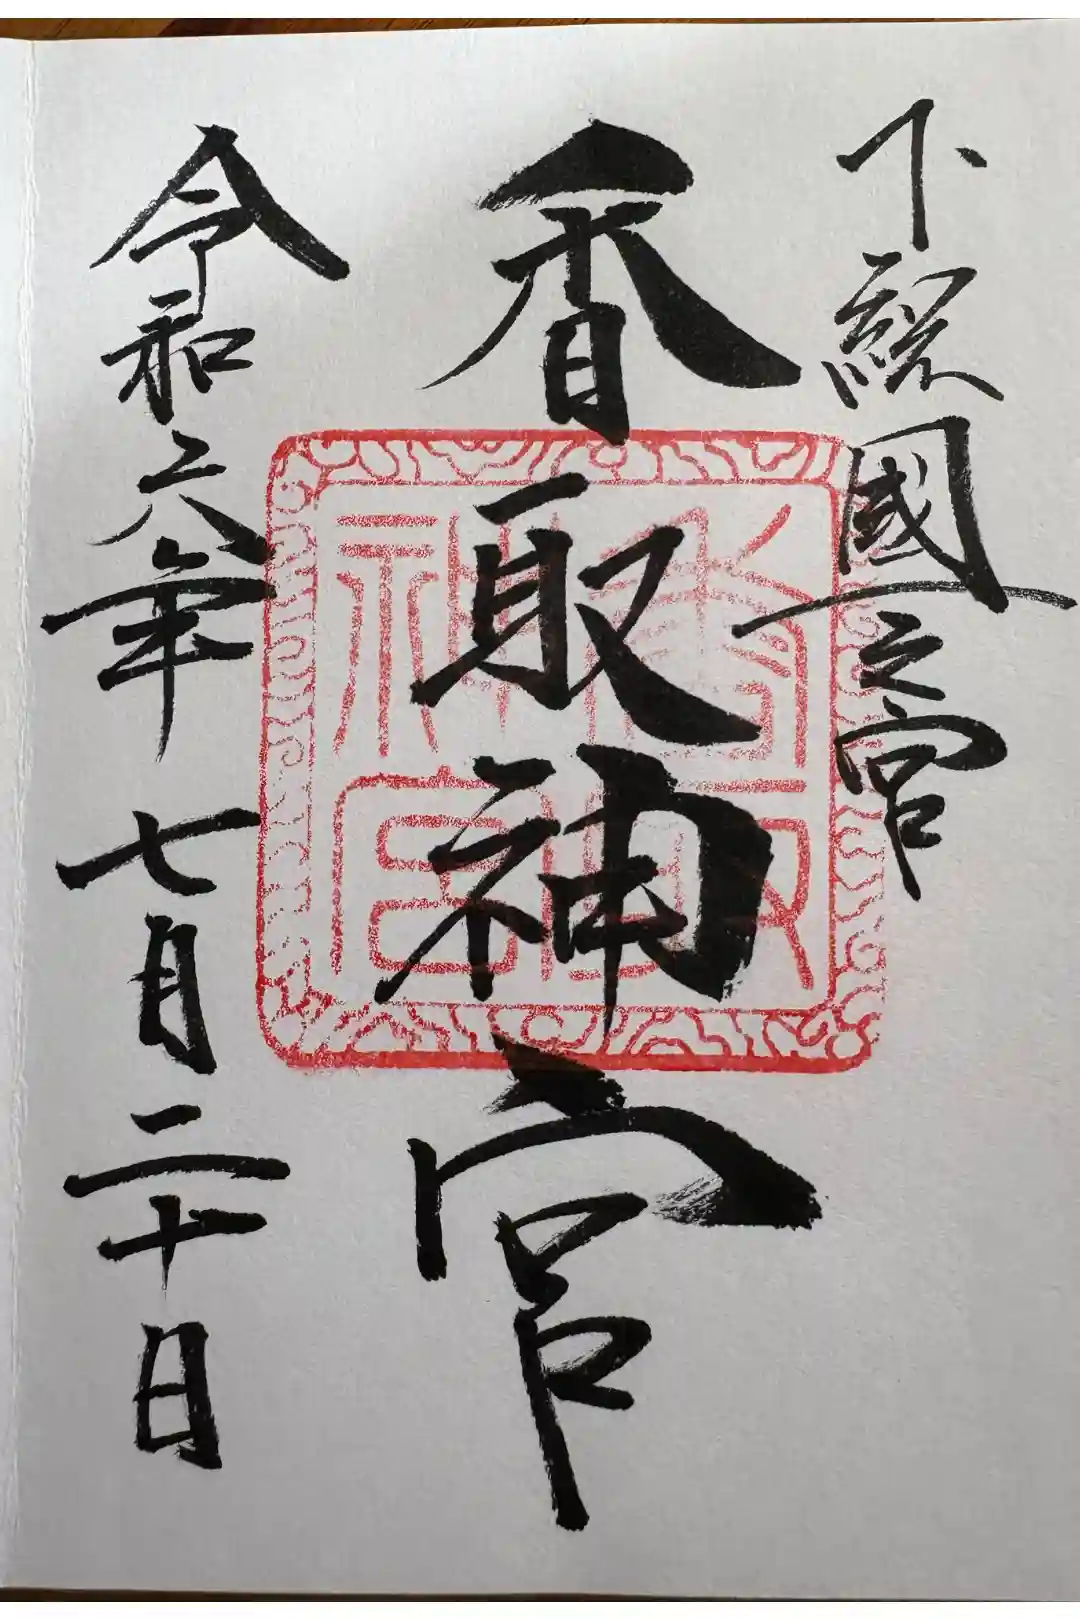 下総國一之宮
香取神宮
令和六年七月二十日
香取神宮